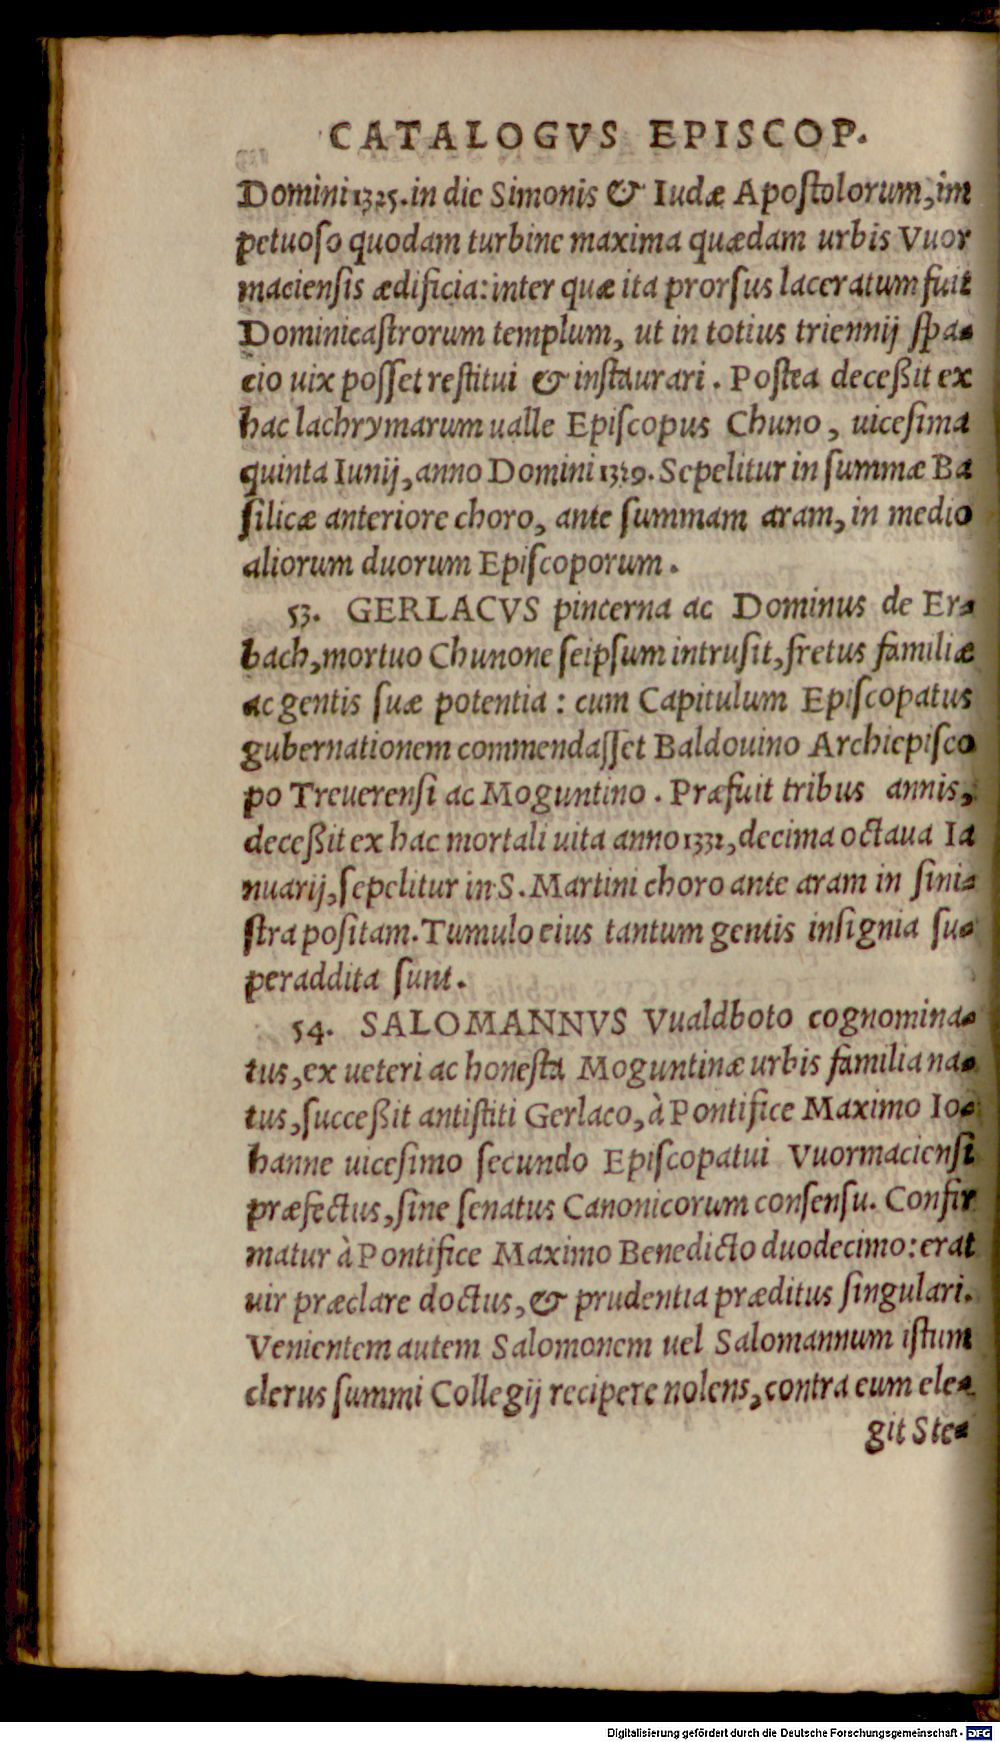 CATALOGVS EPISCOP.
Domini 1325. in die Simonis & Iudæ Apostolorum, im
petuoso quodam turbine maxima quædam urbis Vuor
maciensis ædificia: inter quæ ita prorsus laceratum fuit
Dominicastrorum templum, ut in totius triennij spa-
cio uix posset restitui & instaurari. Postea deceßit ex
hac lachrymarum ualle Episcopus Chuno, uicesima
quinta Iunij, anno Domini 1329. Sepelitur in summæ Ba
silicæ anteriore choro, ante summam aram, in medio
aliorum duorum Episcoporum.
53. GERLACVS pincerna ac Dominus de Er-
bach, mortuo Chunone seipsum intrusit, fretus familiæ
ac gentis suæ potentia: cum Capitulum Episcopatus
gubernationem commendasset Baldouino Archiepisco
po Treuerensi ac Moguntino. Præfuit tribus annis,
deceßit ex hac mortali uita anno 1332, decima octaua Ia
nuarij, sepelitur in S. Martini choro ante aram in sini-
stra positam. Tumulo eius tantum gentis insignia su-
peraddita sunt.
54. SALOMANNVS Vualdboto cognomina-
tus, ex ueteri ac honesta Moguntinæ urbis familia na-
tus, succeßit antistiti Gerlaco, à Pontifice Maximo Io-
hanne uicesimo secundo Episcopatui Vuormaciensi
præfectus, sine senatus Canonicorum consensu. Confir
matur à Pontifice Maximo Benedicto duodecimo: erat
uir præclare doctus, & prudentia præditus singulari.
Venientem autem Salomonem uel Salomannum istum
clerus summi Collegij recipere nolens, contra eum ele-
git Ste-
Digitalisierung gefördert durch die Deutsche Forschungsgemeinschaft - DFG